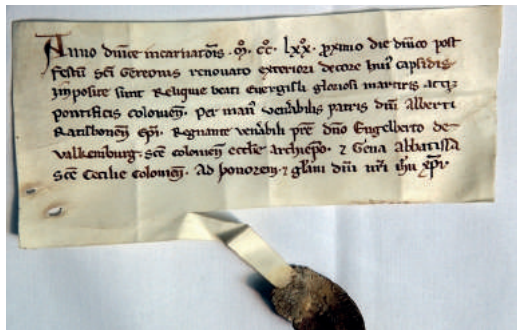 Anno dn̄ice incarnatōis . ᴍ̊. c̊c̊. lx̊x̊. ꝓximo die dn̄ico post
festū sc̄i Gereonis renouato exteriori decore huiꝰ capsidis
Imposite sunt Reliquie beati Euergisli gloriosi martiris arcꝫ
pontificis coloniēn. Per manꝰ ven̄abilis patris dn̄i Alberti
Ratisboneñ ep̄i. Regnante ven̄abili pr̄e dn̄o Engelberto de
valkemburg. sc̄e colonieñ eccl̄ie archiep̄o. ⁊ Gena abbatissa
sc̄e Cecilie colonieñ. Ad honorem. ⁊ gl̄am dn̄i nr̄i ih̄u xp̄i.